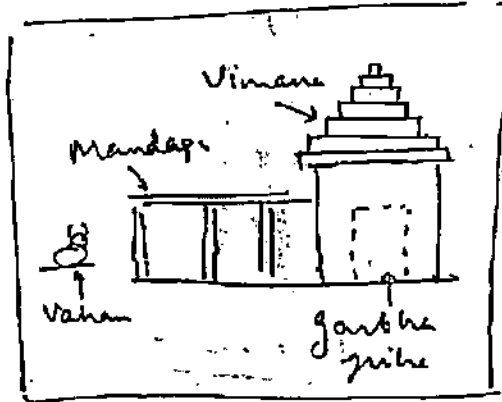 Vimana
Mandap
Vahan
garbha
griha